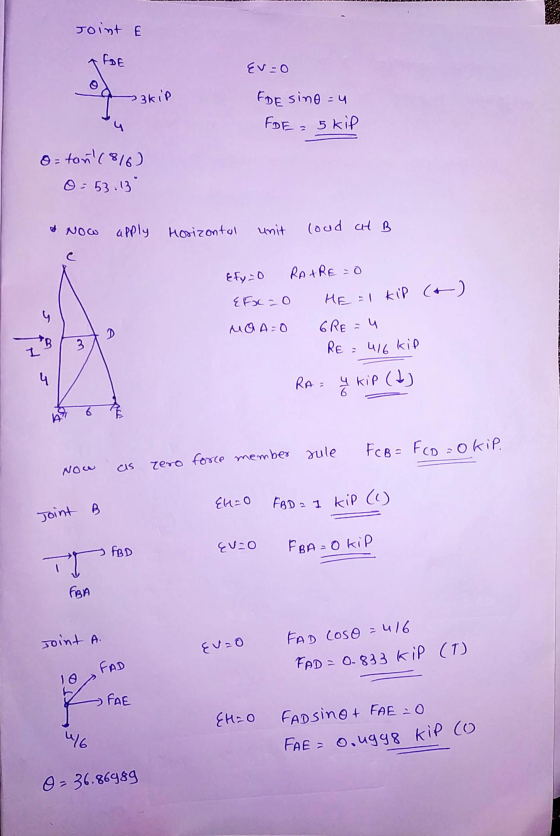 Joint E
FDE
θ
3kip
4
ΣV=0
FDE sinθ = 4
FDE = 5 kip
θ = tan⁻¹(8/6)
θ = 53.13°
* Now apply Horizontal unit load at B
C
4
B
3
D
1
4
A
6
E
ΣFy=0 RA+RE=0
ΣFx=0 HE=1 kip (←)
M@A=0 6RE=4
RE = 4/6 kip
RA = 4/6 kip (↓)
Now as zero force member rule FCB = FCD = 0 kip.
Joint B
ΣH=0 FBD = 1 kip (C)
1
FBD
FBA
ΣV=0 FBA = 0 kip
Joint A.
θ
FAD
FAE
4/6
ΣV=0 FAD cosθ = 4/6
FAD = 0.833 kip (T)
ΣH=0 FADsinθ + FAE = 0
FAE = 0.4998 kip (C)
θ = 36.86989